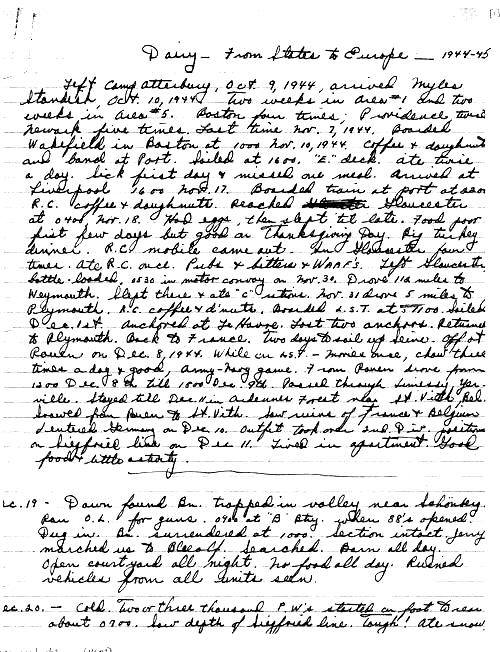 Dairy - From States to Europe - 1944-45
Left Camp Atterbury, Oct. 9, 1944, arrived Myles
Standish, Oct. 10, 1944. Two weeks in area #1 and two
weeks in area #5. Boston four times; Providence twice
Newark five times. Last time Nov. 7, 1944. Boarded
Wakefield in Boston at 1000 Nov. 10, 1944. Coffee & doughnuts
and band at Port. Sailed at 1600. "E" deck. ate twice
a day. Sick first day & missed one meal. Arrived at
Liverpool 1600 Nov. 17. Boarded train at port at
R.C. coffee & doughnuts. Reached Gloucester
at 0400, Nov. 18. Had eggs, then slept til late. Food poor
first few days but good on Thanksgiving Day. Big turkey
dinner. R.C. mobile came out. In Gloucester four
times. Ate R.C. once. Pubs & bitters & WAAF's. Left Gloucester
battle-loaded, 0530 in motor convoy on Nov. 30. Drove 110 miles to
Weymouth. Slept there & ate "C" rations. Nov. 31 drove 5 miles to
Plymouth. R.C. coffee & d'nuts. Boarded L.S.T. at 1100. Sailed
Dec. 1st. Anchored at Le Havre. Lost two anchors. Returned
to Plymouth. Back to France. Two days to sail up Seine. Off at
Rouen on Dec. 8, 1944. While on LST - movies once, chow three
times a day & good, Army-Navy game. From Rouen drove from
1200 Dec. 8th till 1800 Dec. 9th. Passed through
ville. Stayed till Dec. 11 in Ardennes Forest near St. Vith, Bel.
from Rouen to St. Vith. Saw ruins of France & Belgium
& entered Germany on Dec. 10. Outfit took over 2nd. Div. positions
on Siegfried line on Dec 11. Lived in apartment. Good
food & little activity.
ec. 19 - Dawn found Bn. trapped in valley near Schönberg.
Ran O.L. for guns. 0900 at "B" Btry. when 88's opened.
Dug in. Bn. surrendered at 1000. Section intact. Jerry
marched us to Bleialf. Searched. Barn all day.
Open courtyard all night. No food all day. Ruined
vehicles from all units seen.
ec. 20. - Cold. Two or three thousand P.W.'s started on foot to rear
about 0700. Saw depth of Siegfried line. Tough! Ate snow.